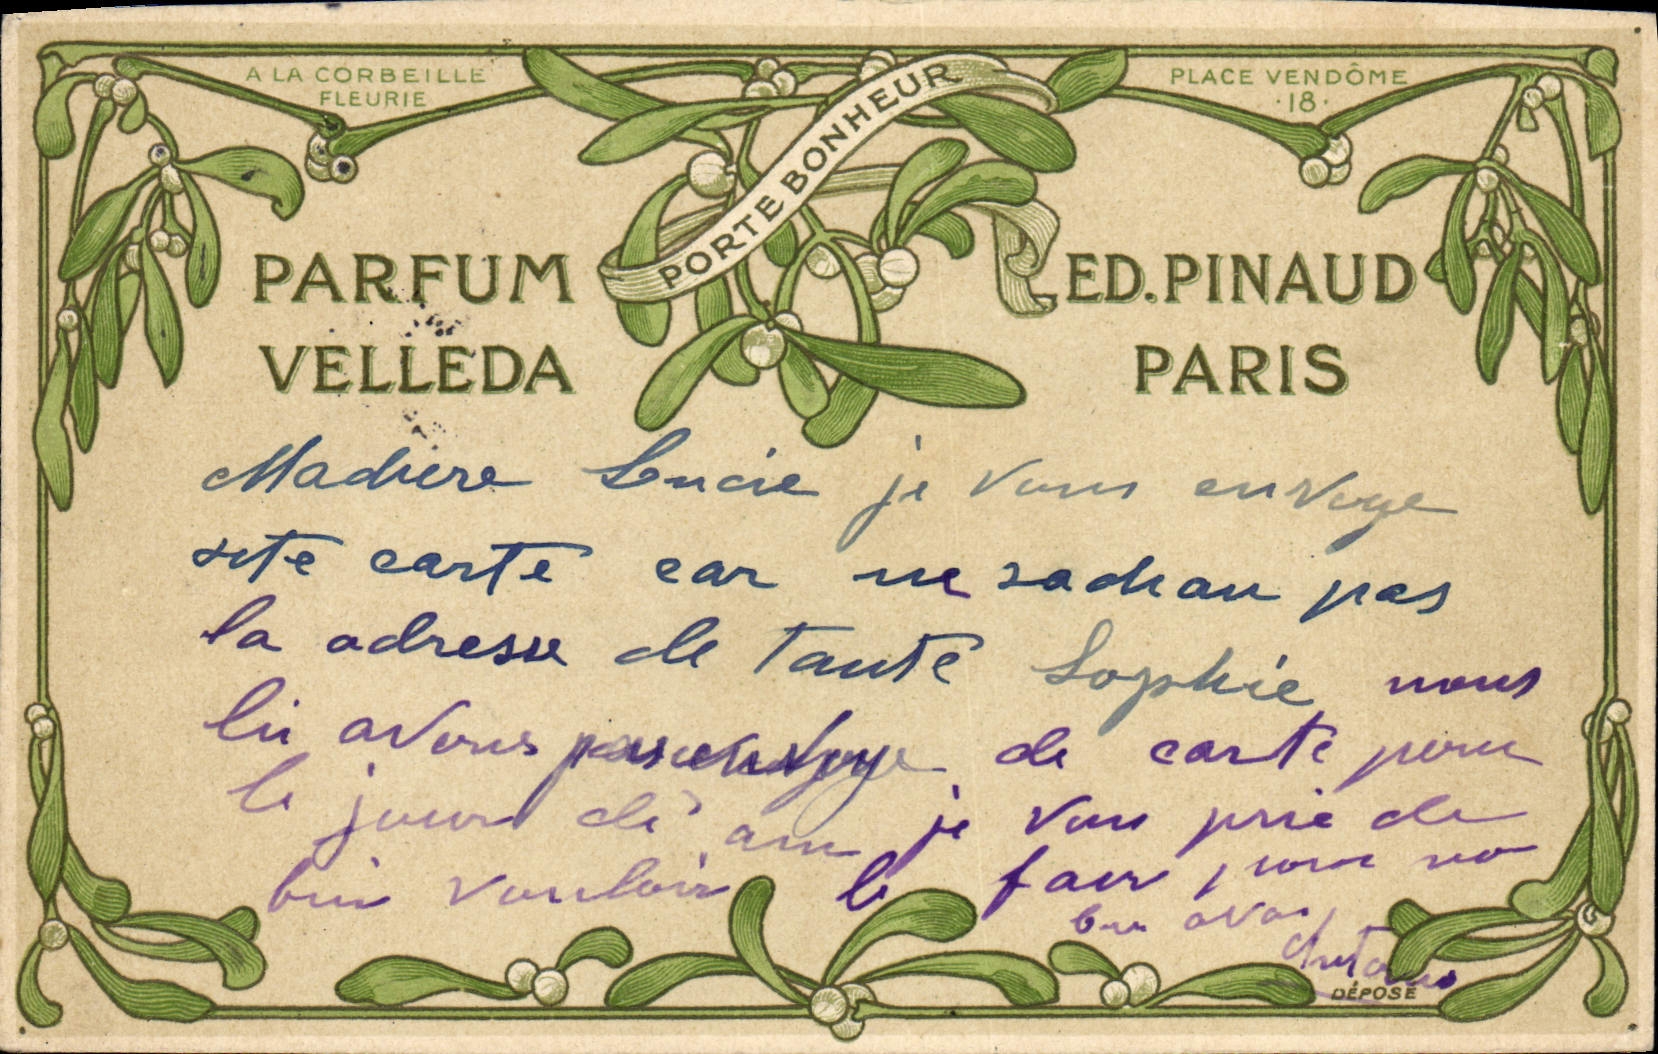 A LA CORBEILLE
FLEURIE
PLACE VENDÔME
·18·
PORTE BONHEUR
PARFUM
VELLEDA
ED. PINAUD
PARIS
Lucie je vous envoye
carte car ne pas
la adresse de tante Sophie nous
lui avons pas envoye de carte pour
le jour de an je vous prie de
bien vouloir le faire pour no
DÉPOSÉ